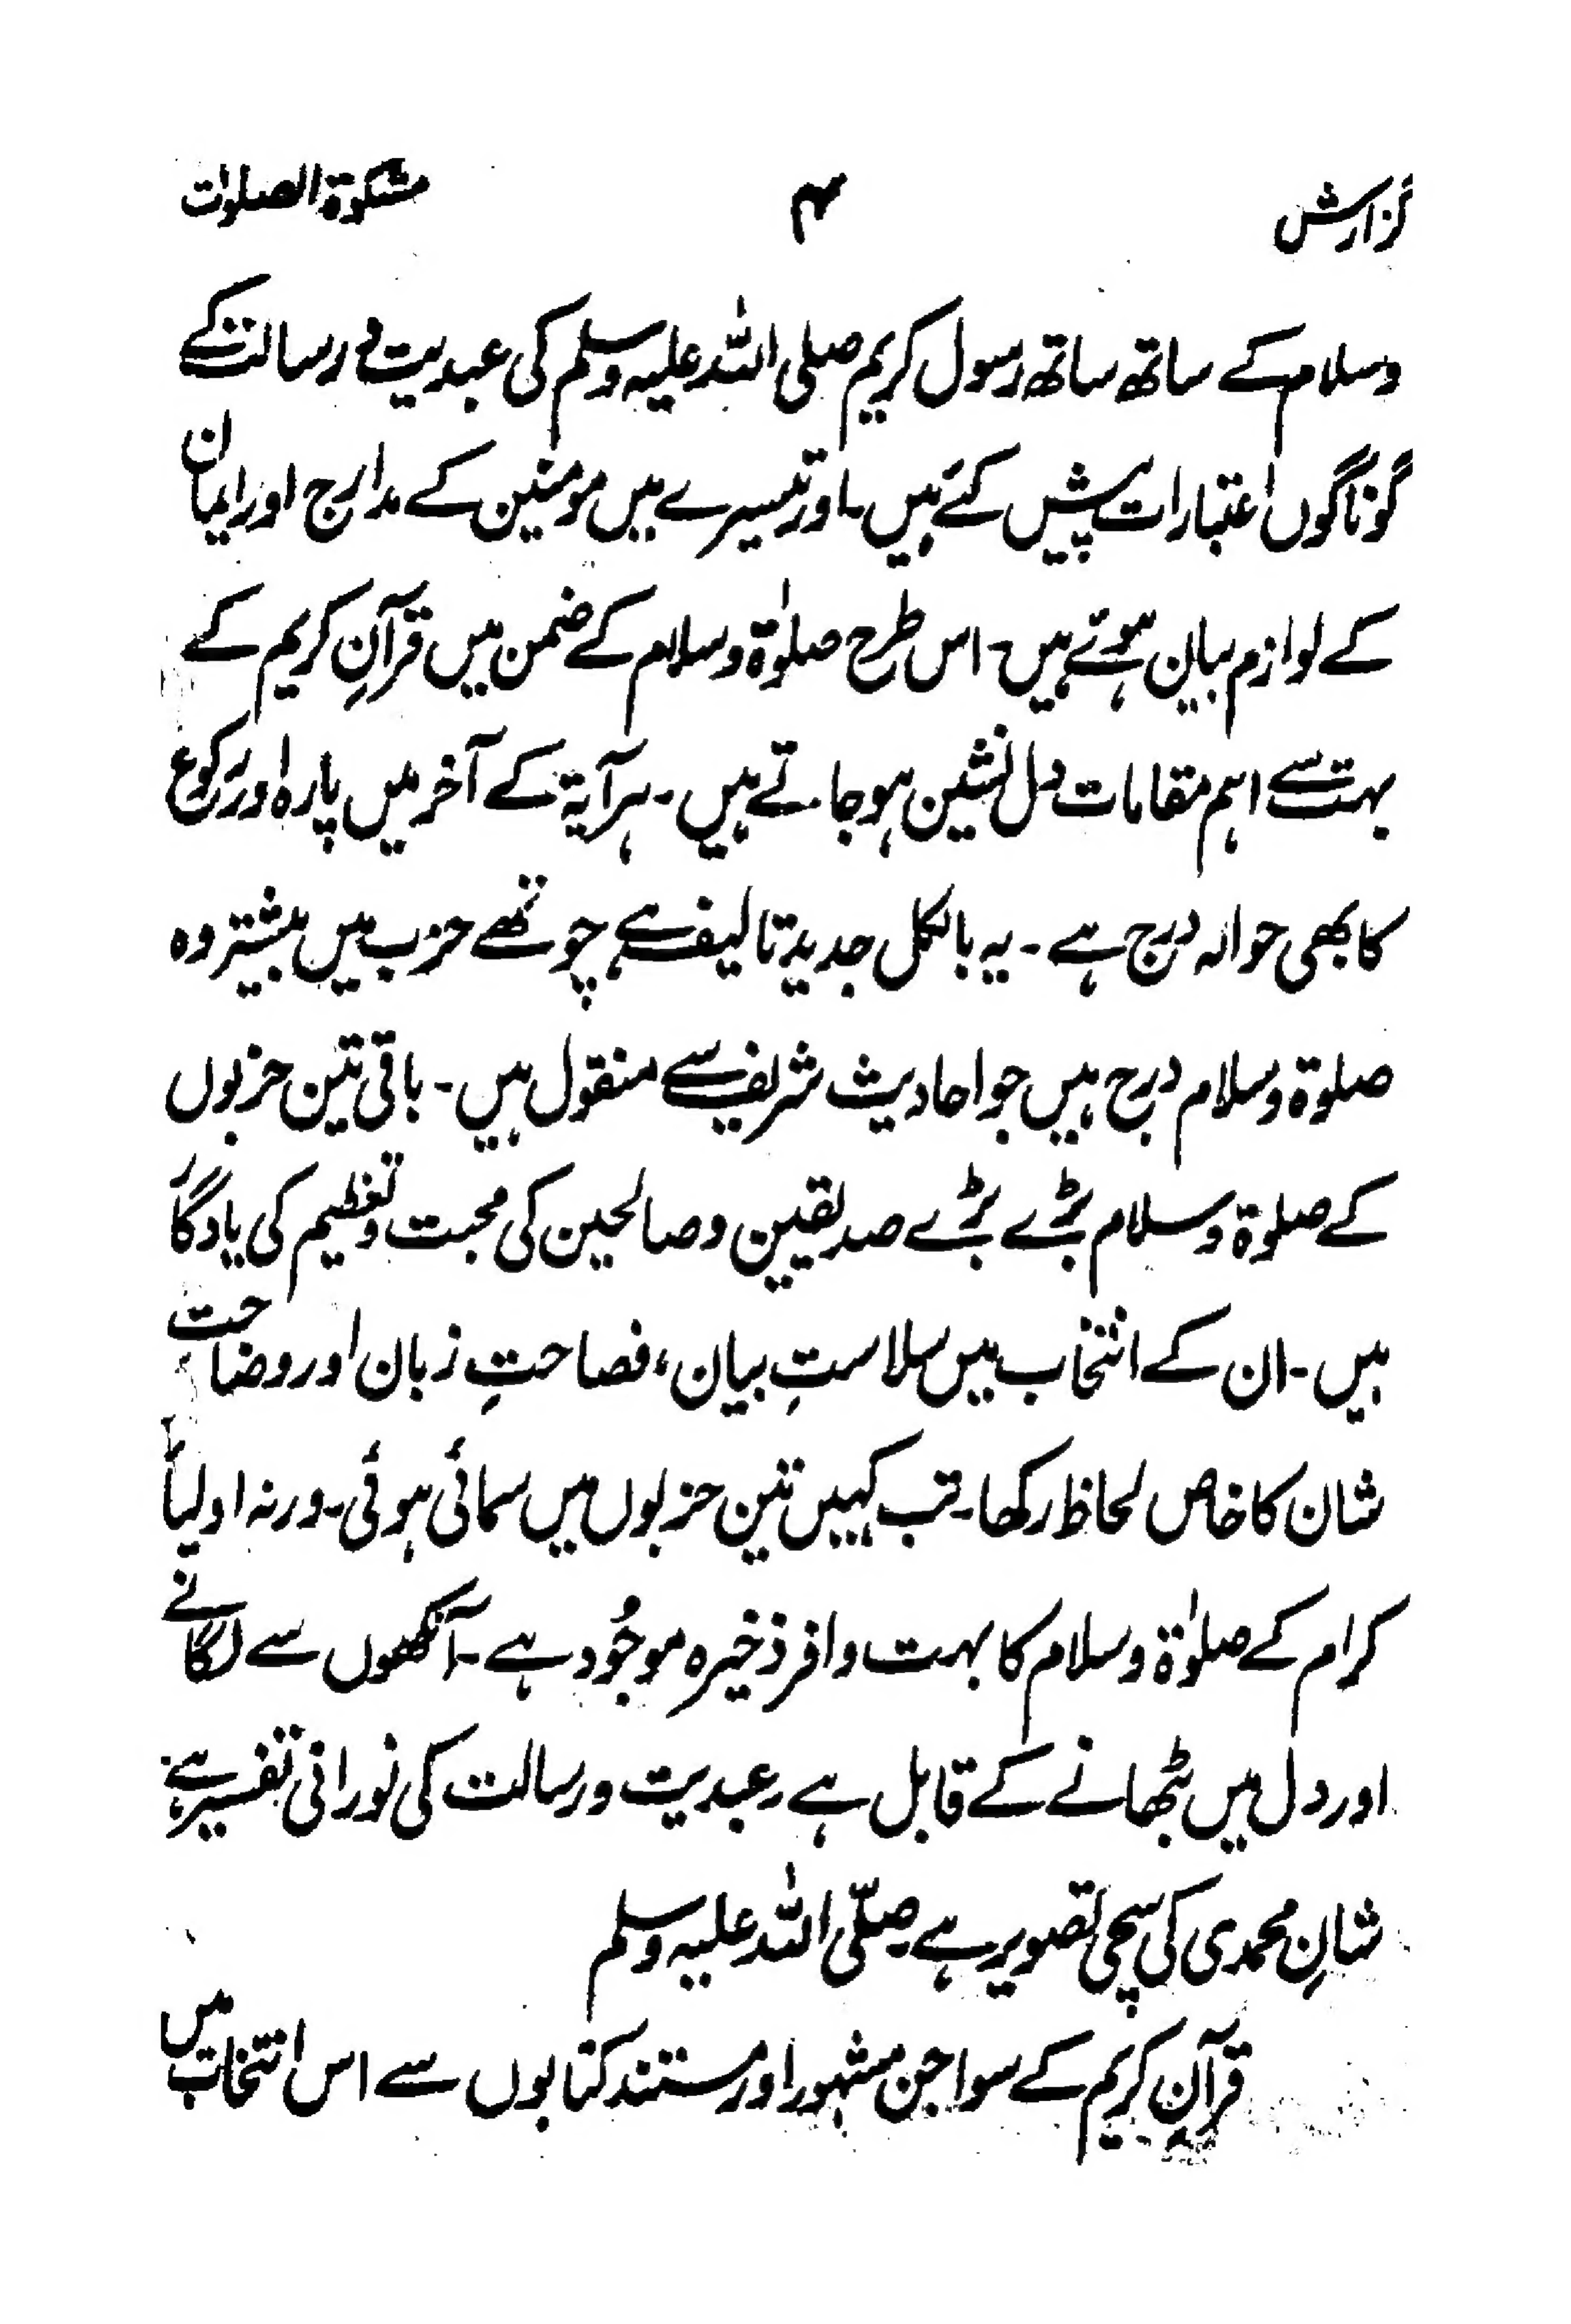 گزارش ۴ مشکوۃ الصلوات
وسلام کے ساتھ ساتھ رسول کریم صلی اللہ علیہ وسلم کی عبدیت و رسالت کے
گوناگوں اعتبارات پیش کئے ہیں۔ اور تیسرے میں مومنین کے مدارج اور ایمان
کے لوازم بیان ہوئے ہیں۔ اس طرح صلوٰۃ وسلام کے ضمن میں قرآنِ کریم کے
بہت سے اہم مقامات دل نشین ہو جاتے ہیں۔ ہر آیۃ کے آخر میں پارہ اور رکوع
کا بھی حوالہ درج ہے۔ یہ بالکل جدید تالیف ہے چوتھے حزب میں بیشتر وہ
صلوۃ وسلام درج ہیں جو احادیث شریف سے منقول ہیں۔ باقی تین حزبوں
کے صلوۃ وسلام بڑے بڑے صدیقین وصالحین کی محبت وتعظیم کی یادگار
ہیں۔ ان کے انتخاب میں سلاستِ بیان، فصاحتِ زبان اور وضاحت
شان کا خاص لحاظ رکھا۔ تب کہیں تین حزبوں میں سمائی ہوئی۔ ورنہ اولیاً
کرام کے صلوٰۃ وسلام کا بہت وافر ذخیرہ موجُود ہے۔ آنکھوں سے لگانے
اور دل میں بٹھانے کے قابل ہے۔ عبدیت ورسالت کی نورانی تفسیر ہے۔
شانِ محمدی کی سچی تصویر ہے۔ صلّی اللہ علیہ وسلم
قرآنِ کریم کے سوا جن مشہور اور مستند کتابوں سے اس انتخاب میں